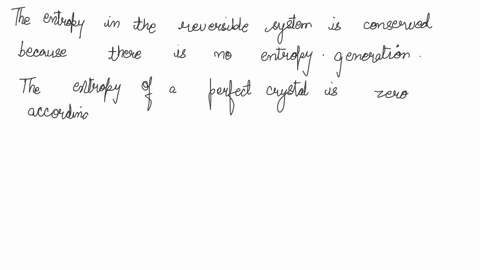 The entropy in the reversible system is conserved
because there is no entropy generation.
The entropy of a perfect crystal is zero
accordino